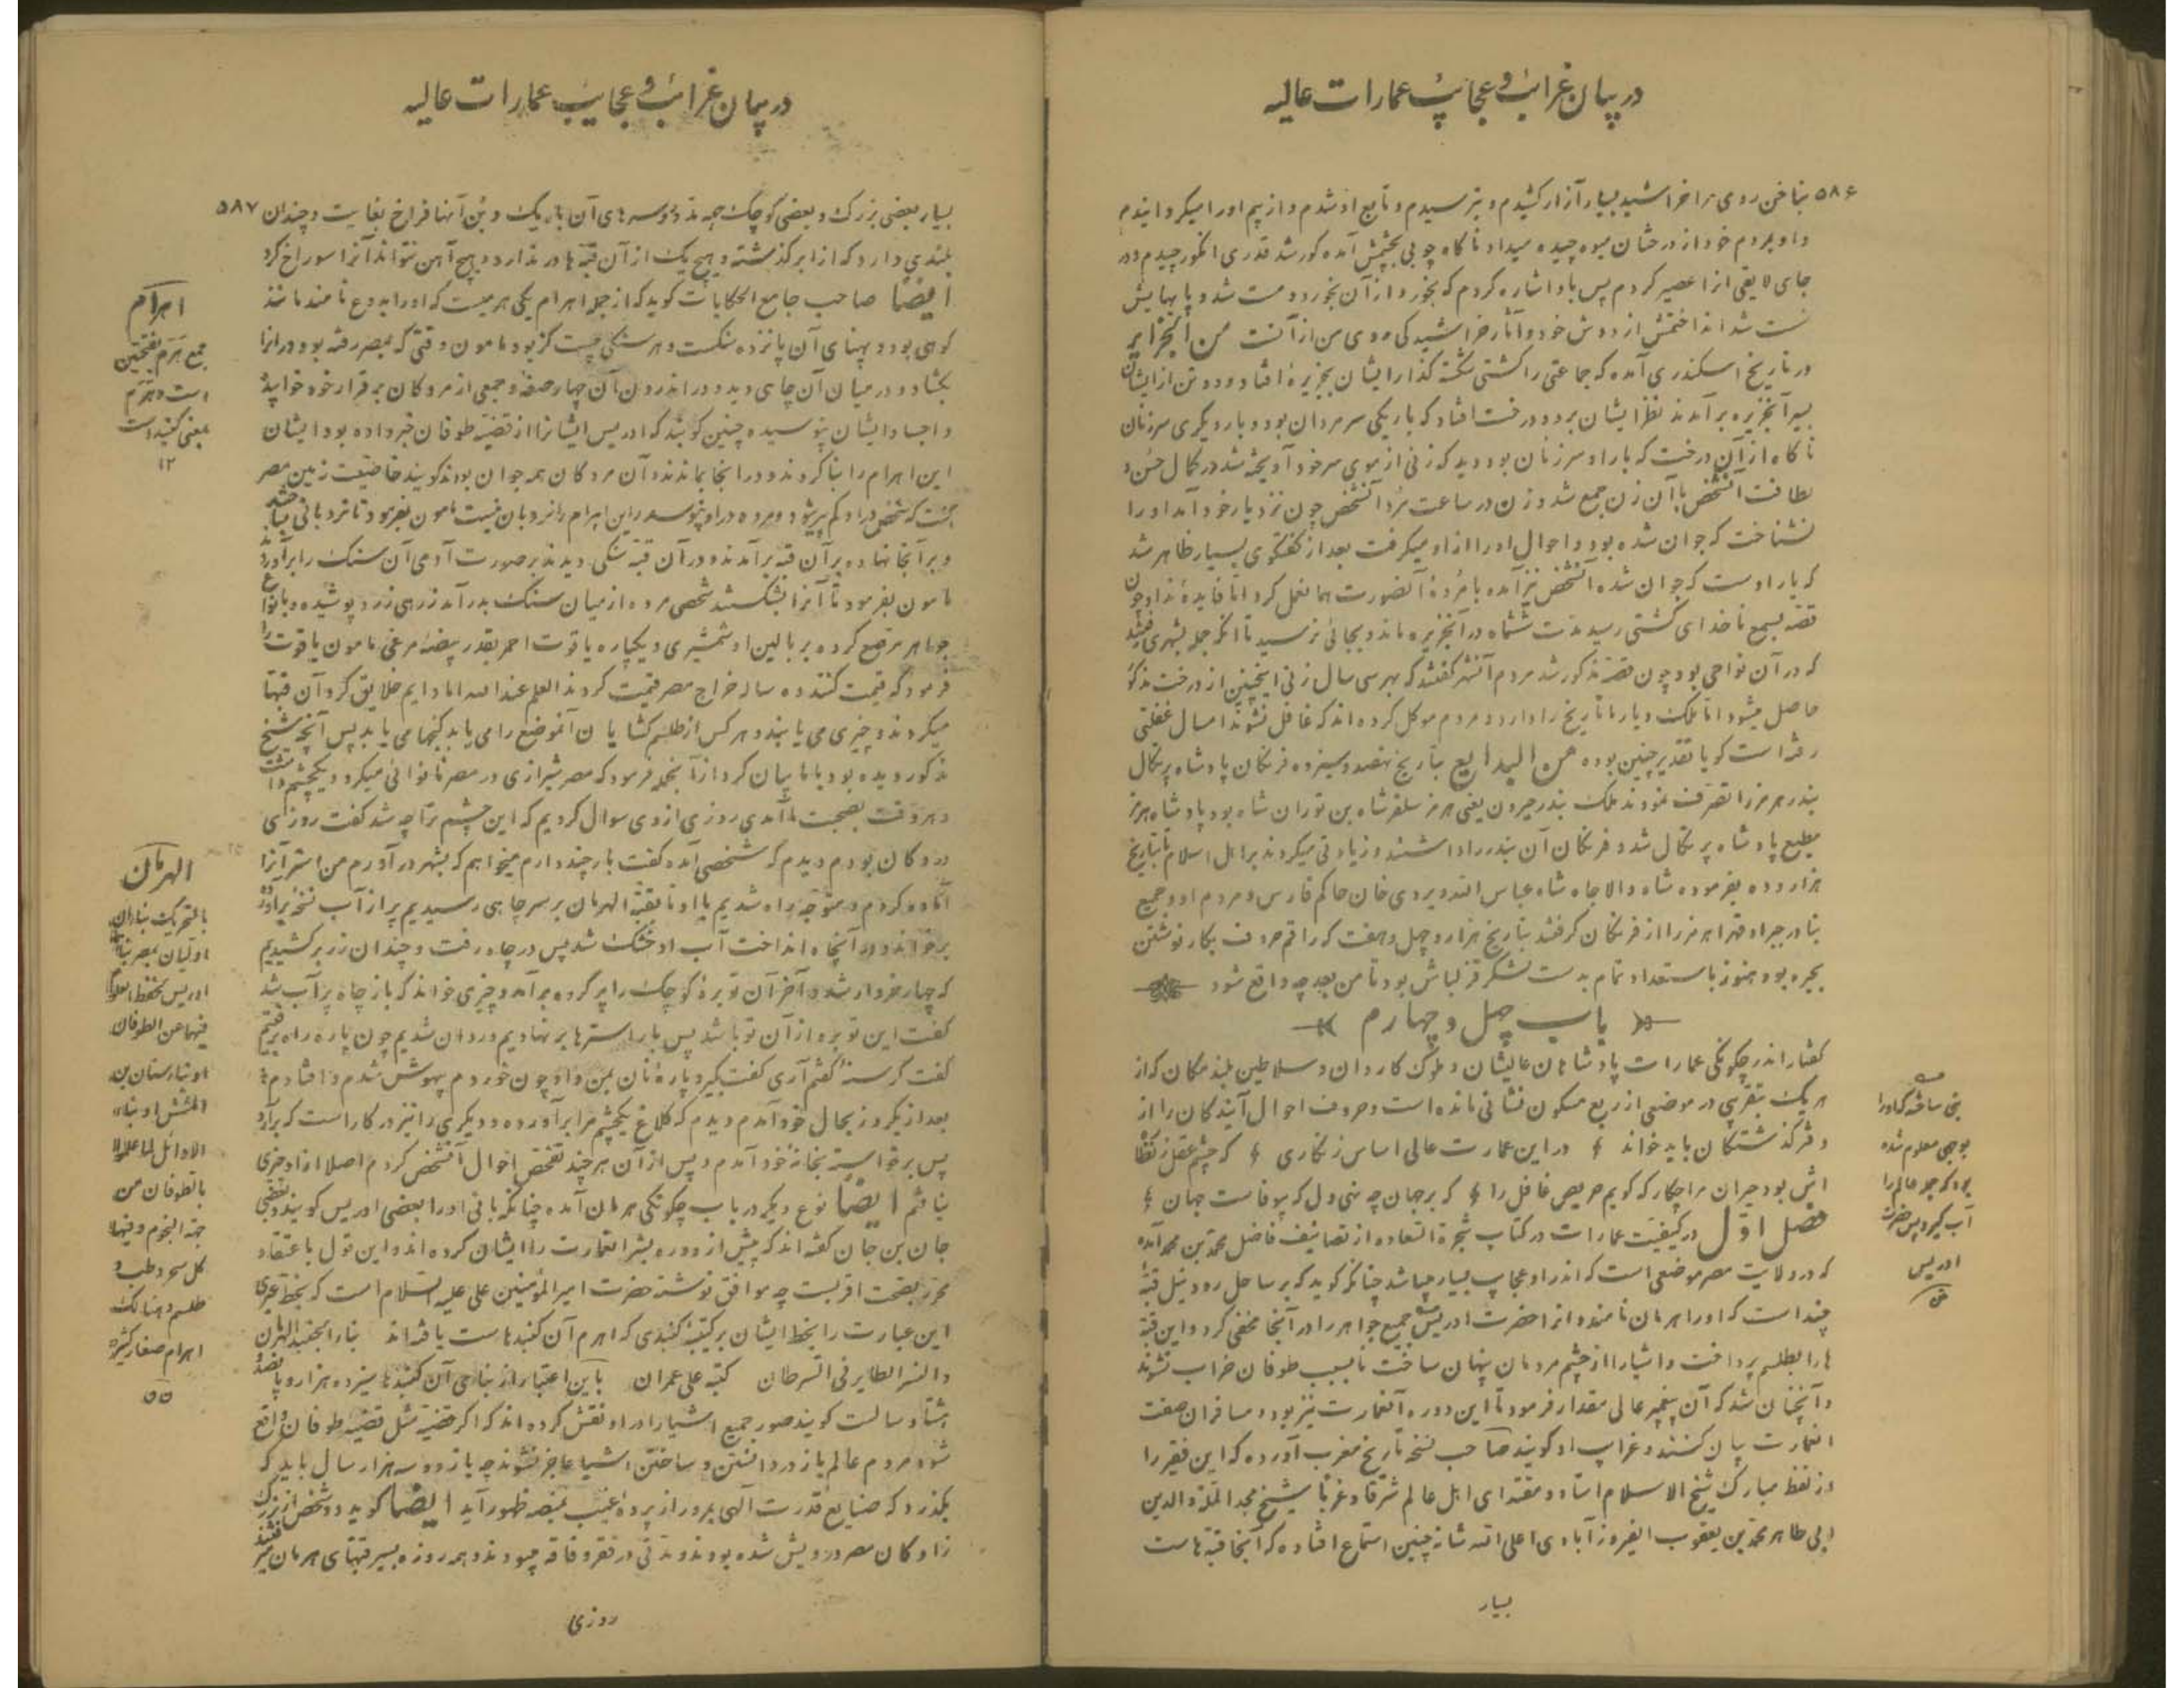 در بیان غرائب و عجایب عمارات عالیه
۵۸۶
بناخن روی مرا خراشید بسیار آزار کشیدم و بترسیدم و تابع او شدم و از بیم او را میگردانیدم
و او بمردم خود از درختان میوه چیده میداد ناکاه چوبی بچشمش آمده کور شد قدری انکور چیدم و در
جای لایقی انرا عصیر کردم پس باو اشاره کردم که بخور و از آن بخورد و مست شد و پاهایش
سست شد انداختمش از دوش خود و آثار خراشیدکی روی من از آنست من الجزایر
در تاریخ اسکندری آمده که جماعتی را کشتی شکسته کذار ایشان بجزیرهٔ افتاد و دو تن از ایشان
بسیر آنجزیره برآمدند نظر ایشان بر دو درخت افتاد که بار یکی سر مردان بود و بار دیکری سر زنان
ناکاه از آن درخت که بار او سر زنان بود دید که زنی از موی سر خود آویخته شد در کمال حسن و
لطافت آنشخص با آن زن جمع شد و زن در ساعت مرد آنشخص چون نزد یار خود آمد او را
نشناخت که جوان شده بود و احوال او را از او میکرفت بعد از کفتکوی بسیار ظاهر شد
که یار اوست که جوان شده آنشخص نیز آمده با مردهٔ آنصورت همان فعل کرد اما فایدهٔ نداد چون
قصه بسمع ناخدای کشتی رسید مدت ششماه در آنجزیره ماند و بجائی نرسید تا آنکه جمله بشهری رفتند
که در آن نواحی بود چون قصه مذکور شد مردم آنشهر کفتند که بهر سی سال زنی اینچنین از درخت مذکور
حاصل میشود اما ملک دیار ما تاریخ را دارد و مردم موکل کرده اند که غافل نشوند امسال غفلتی
رفته است کویا تقدیر چنین بوده من البدایع بتاریخ نهصد و سیزده فرنکان پادشاه پرتکال
بندر هرمز را تصرف نمودند ملک بندر جرون یعنی هرمز سلغر شاه بن توران شاه بود پادشاه هرمز
مطیع پادشاه پرتکال شد و فرنکان آن بندر را داشتند و زیادتی میکردند بر اهل اسلام تا بتاریخ
هزار و ده بفرموده شاه والا جاه شاه عباس الله ویردی خان حاکم فارس و مردم او و جمیع
بنادر جبرا و قهرا هرمز را از فرنکان کرفتند بتاریخ هزار و چهل و هفت که راقم حروف بکار نوشتن
بجره بود هنوز با ستعداد تمام بدست لشکر قزلباش بود تا من بعد چه واقع شود
باب چهل و چهارم
کفتار اندر چکونکی عمارات پادشاهان عالیشان و ملوک کاردان و سلاطین بلند مکان که از
هر یک بتقریبی در موضعی از ربع مسکون نشانی مانده است و حروف احوال آیندکان را از
دفتر کذشتکان باید خواند در این عمارت عالی اساس زنکاری که چشم عقل ز نظا
اش بود حیران مرا چکار که کویم حریص غافل را که بر جهان چه نهی دل که بیوفاست جهان
فصل اول در کیفیت عمارات در کتاب شجرة السعاده از تصانیف فاضل محمد بن محمد آمده
که در ولایت مصر موضعی است که اندر او عجایب بسیار میباشد چنانکه کوید که بر ساحل رود نیل قبهٔ
چند است که او را هرمان نامند و انرا حضرت ادریس جمیع جواهر را در آنجا مخفی کرد و این قبه
ها را بطلسم پرداخت و اشیا را از چشم مردمان پنهان ساخت تا بسبب طوفان خراب نشوند
و آنچنان شد که آن پیغمبر عالی مقدار فرمود تا این دوره آنعمارت نیز بود و مسافران صفت
انعمارت بیان کنند و غرایب او کویند صاحب نسخه تاریخ مغرب آورده که این فقیر را
از لفظ مبارک شیخ الاسلام استاد و مقتدای اهل عالم شرقا و غربا شیخ مجد الملة والدین
ابی طاهر محمد بن یعقوب الفیروزآبادی اعلی الله شانه چنین استماع افتاده که آنجا قبه هاست
بسیار
بوحی معلوم شده
بود که جمله عالم را
آب کیرد پس حضرت
ادریس
در بیان غرائب و عجایب عمارات عالیه
۵۸۷
بسیار بعضی بزرک و بعضی کوچک چه مذ و سرهای آن باریک و بن آنها فراخ بغایت و چندان
بلندی دارد که از ابر کذشته و هیچ یک از آن قبه ها در ندارد و هیچ آهن نتواند آنرا سوراخ کرد
ایضا صاحب جامع الحکایات کوید که از جمله اهرام یکی هرمیست که او را ابدوع نامند مانند
کوهی بود و پهنای آن پانزده سنکست و هر سنکی بیست کز بود مامون وقتی که بمصر رفته بود در انرا
بکشاد و در میان آن چاهی دید و در اندرون آن چهار صفه و جمعی از مردکان برقرار خود خوابیده
و اجساد ایشان نپوسیده چنین کویند که ادریس ایشانرا از قضیه طوفان خبر داده بود ایشان
این اهرام را بنا کردند و در انجا بماندند و آن مردکان همه جوان بودند کویند خاصیت زمین مصر
چنست که شخص در او کم پیر شود و مرده در او نپوسد در این اهرام را نردبان نیست مامون بفرمود تا نردبانی ساختند
و بر آنجا نهاده بر آن قبه برآمدند و در آن قبه سنکی دیدند بر صورت آدمی آن سنک را برآوردند
مامون بفرمود تا آنرا بشکستند شخصی مرده از میان سنک بدر آمد زرهی زرد پوشیده و بانواع
جواهر مرصع کرده بر بالین او شمشیری و یکپاره یاقوت احمر بقدر بیضهٔ مرغی مامون یاقوت را
فرمود که قیمت کنند ده ساله خراج مصر قیمت کردند العلم عند الله اما دایم خلایق کرد آن قبها
میکردند و چیزی می یابند و هر کس از طلسم کشایان آنموضع را می یابد کنجها می یابد پس آنچه شیخ
مذکور دیده بود با ما بیان کرد از آنجمله فرمود که مصر شیرازی در مصر نانوائی میکرد و یکچشم داشت
و هر وقت بصحبت ما آمدی روزی از وی سوال کردیم که این چشم ترا چه شد کفت روزی
در دکان بودم دیدم که شخصی آمده کفت بار چند دارم میخواهم که بشهر در آورم من استر آنرا
آماده کردم و متوجه راه شدیم با او تا بقبه الهرمان بر سر چاهی رسیدیم پر از آب نسخه برآورد
برخواند و در آنچاه انداخت آب او خشک شد پس در چاه رفت و چندان زر برکشیدیم
که چهار خروار شد و آخر آن توبرهٔ کوچک را پر کرده برآمد و چیزی خواند که باز چاه پر آب شد
کفت این توبره از آن تو باشد پس بار استرها بر نهادیم و روان شدیم چون پاره راه رفتیم
کفت کرسنهٔ کفتم آری کفت بکیر و پارهٔ نان بمن داد چون خوردم بیهوش شدم و افتادم
بعد از یکروز بحال خود آمدم دیدم که کلاغ یکچشم مرا برآورده و دیکری را نیز در کار است که برآرد
پس برخواسته بخانهٔ خود آمدم و پس از آن هر چند تفحص احوال آنشخص کردم اصلا از او خبری
نیافتم ایضا نوع دیکر در باب چکونکی هرمان آمده چنانکه بانی او را بعضی ادریس کویند و بعضی
جان بن جان کفته اند که پیش از دوره بشر انعمارت را ایشان کرده اند و این قول باعتقاد
محرر بصحت اقربست چه موافق نوشته حضرت امیر المؤمنین علی علیه السلام است که بخط عبری
این عبارت را بخط ایشان بر کتیبهٔ کنبدی که اهرم آن کنبدهاست یافته اند بنا را بجنبد الهرمان
و النسر الطایر فی السرطان کتبه علی عمران باین اعتبار از بنای آن کنبدها سیزده هزار و پانصد و
هشتاد سالست کویند صور جمیع اشیا را در او نقش کرده اند که اکر قضیه مثل قضیه طوفان واقع
شود مردم عالم باز در دانستن و ساختن اشیا عاجز نشوند چه باز دو سه هزار سال باید که
بکذرد که صنایع قدرت الهی بمرور از پرده غیب بمنصه ظهور آید ایضا کوید دو شخص از بزرک
زادکان مصر درویش شده بودند و مدتی در فقر و فاقه میبودند و همه روزه بسیر قبهای هرمان میرفتند
روزی
اهرام
جمع هرم بفتحتین
است و هرم
بمعنی کنبد است
۱۲
الهرمان
بالتحریک بناءان
اولیان بمصر بناه
ادریس لحفظ العلوم
فیهما عن الطوفان
او بناء سنان بن
المشلشل او بناء
الاوائل لما علموا
بالطوفان من
جهة النجوم و فیها
کل سحر و طب و
طلسم و هنالک
اهرام صغار کثیرة